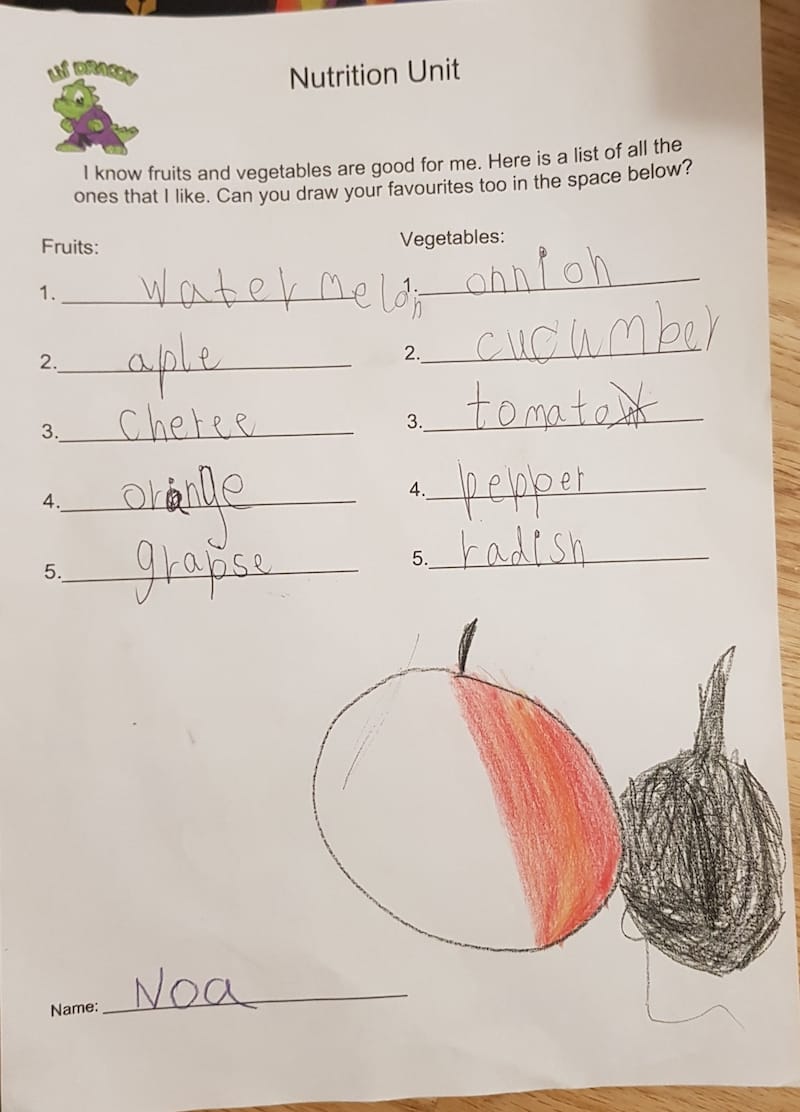 LIL' DRAGON
Nutrition Unit
I know fruits and vegetables are good for me. Here is a list of all the
ones that I like. Can you draw your favourites too in the space below?
Fruits:
1. watermelon
2. aple
3. cheree
4. orange
5. grapse
Vegetables:
1. onnion
2. cucumber
3. tomato
4. pepper
5. radish
Name: Noa